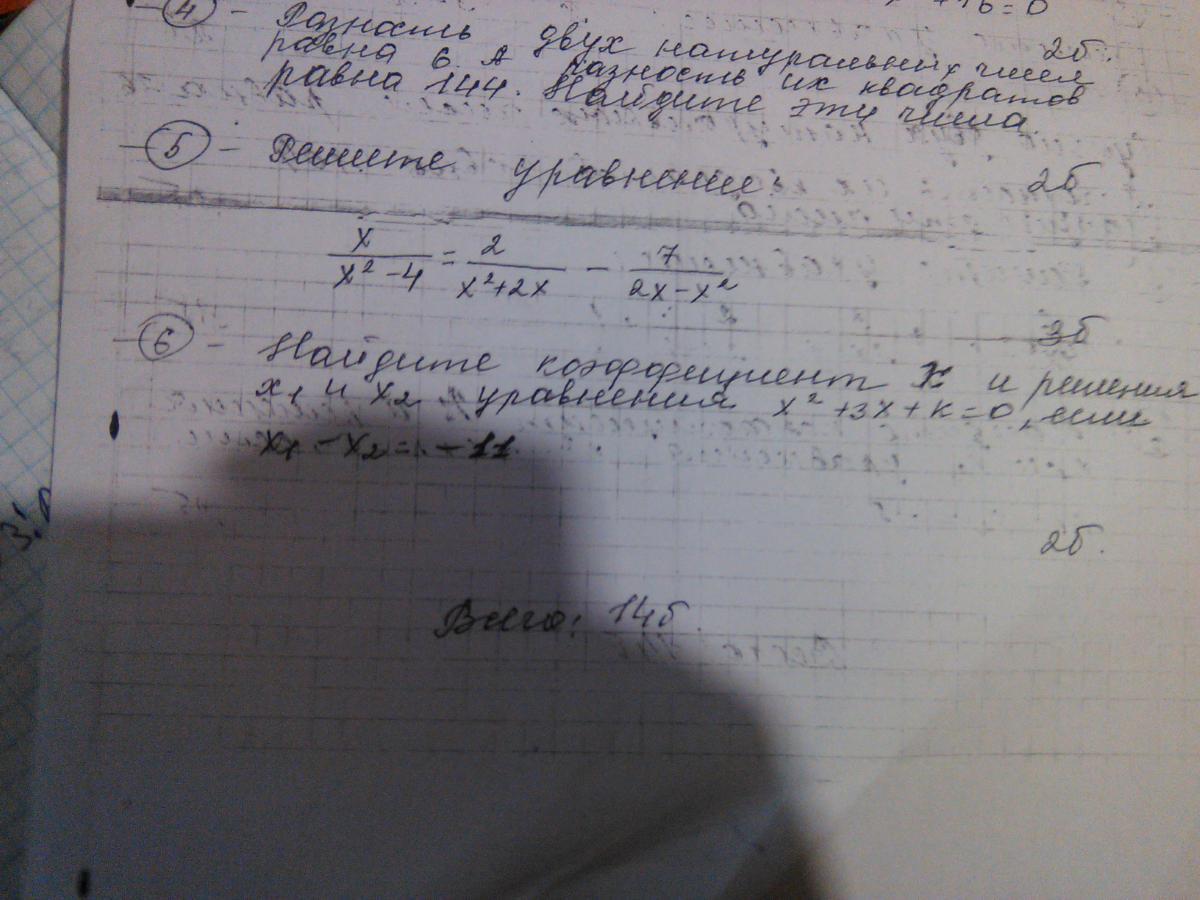 +16=0
4 - Разность двух натуральных чисел 2б.
равна 6. А разность их квадратов
равна 144. Найдите эти числа.
5 - Решите уравнение: 2б
x/(x² - 4) = 2/(x² + 2x) - 7/(2x - x²)
3б
6 - Найдите коэффициент K и решения
x₁ и x₂ уравнения x² + 3x + к = 0, если
x₁ - x₂ = -11
2б.
Всего: 14б.